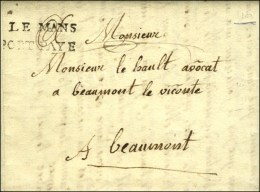 LE MANS
PORT PAYE
Monsieur
Monsieur le hault avocat
a beaumont le vicomte
A beaumont